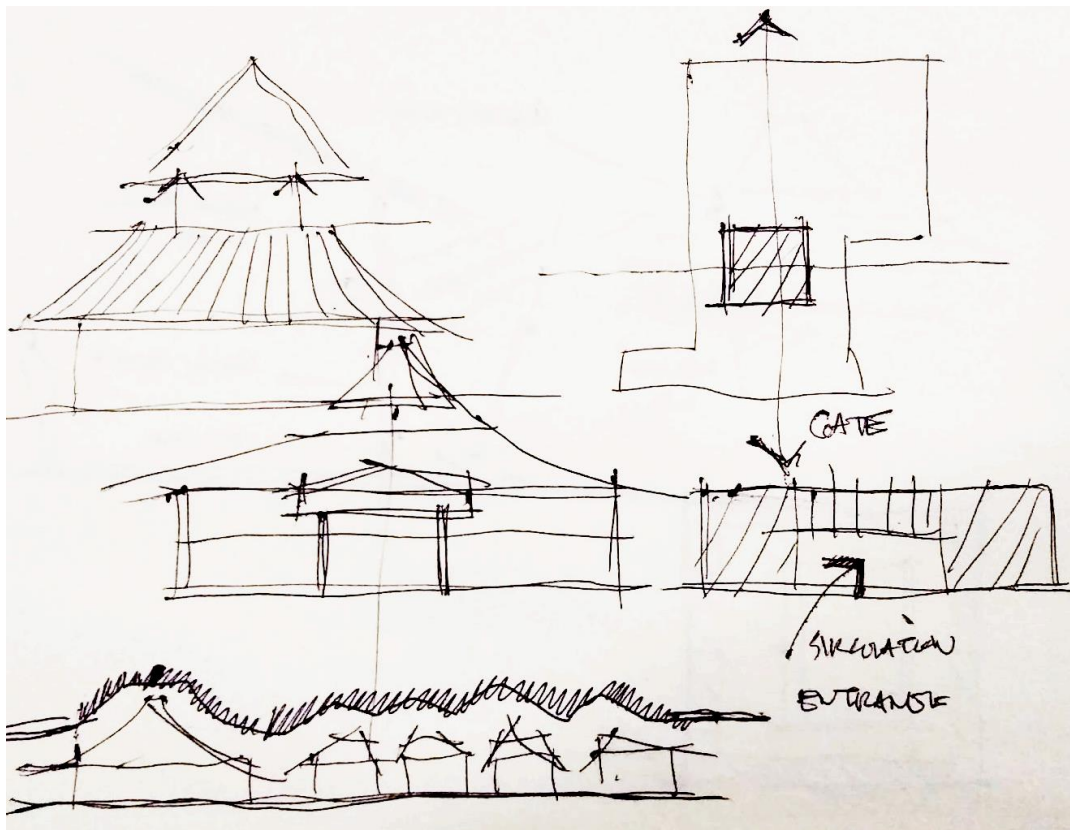 GATE
SIRCULATION
ENTRANSE